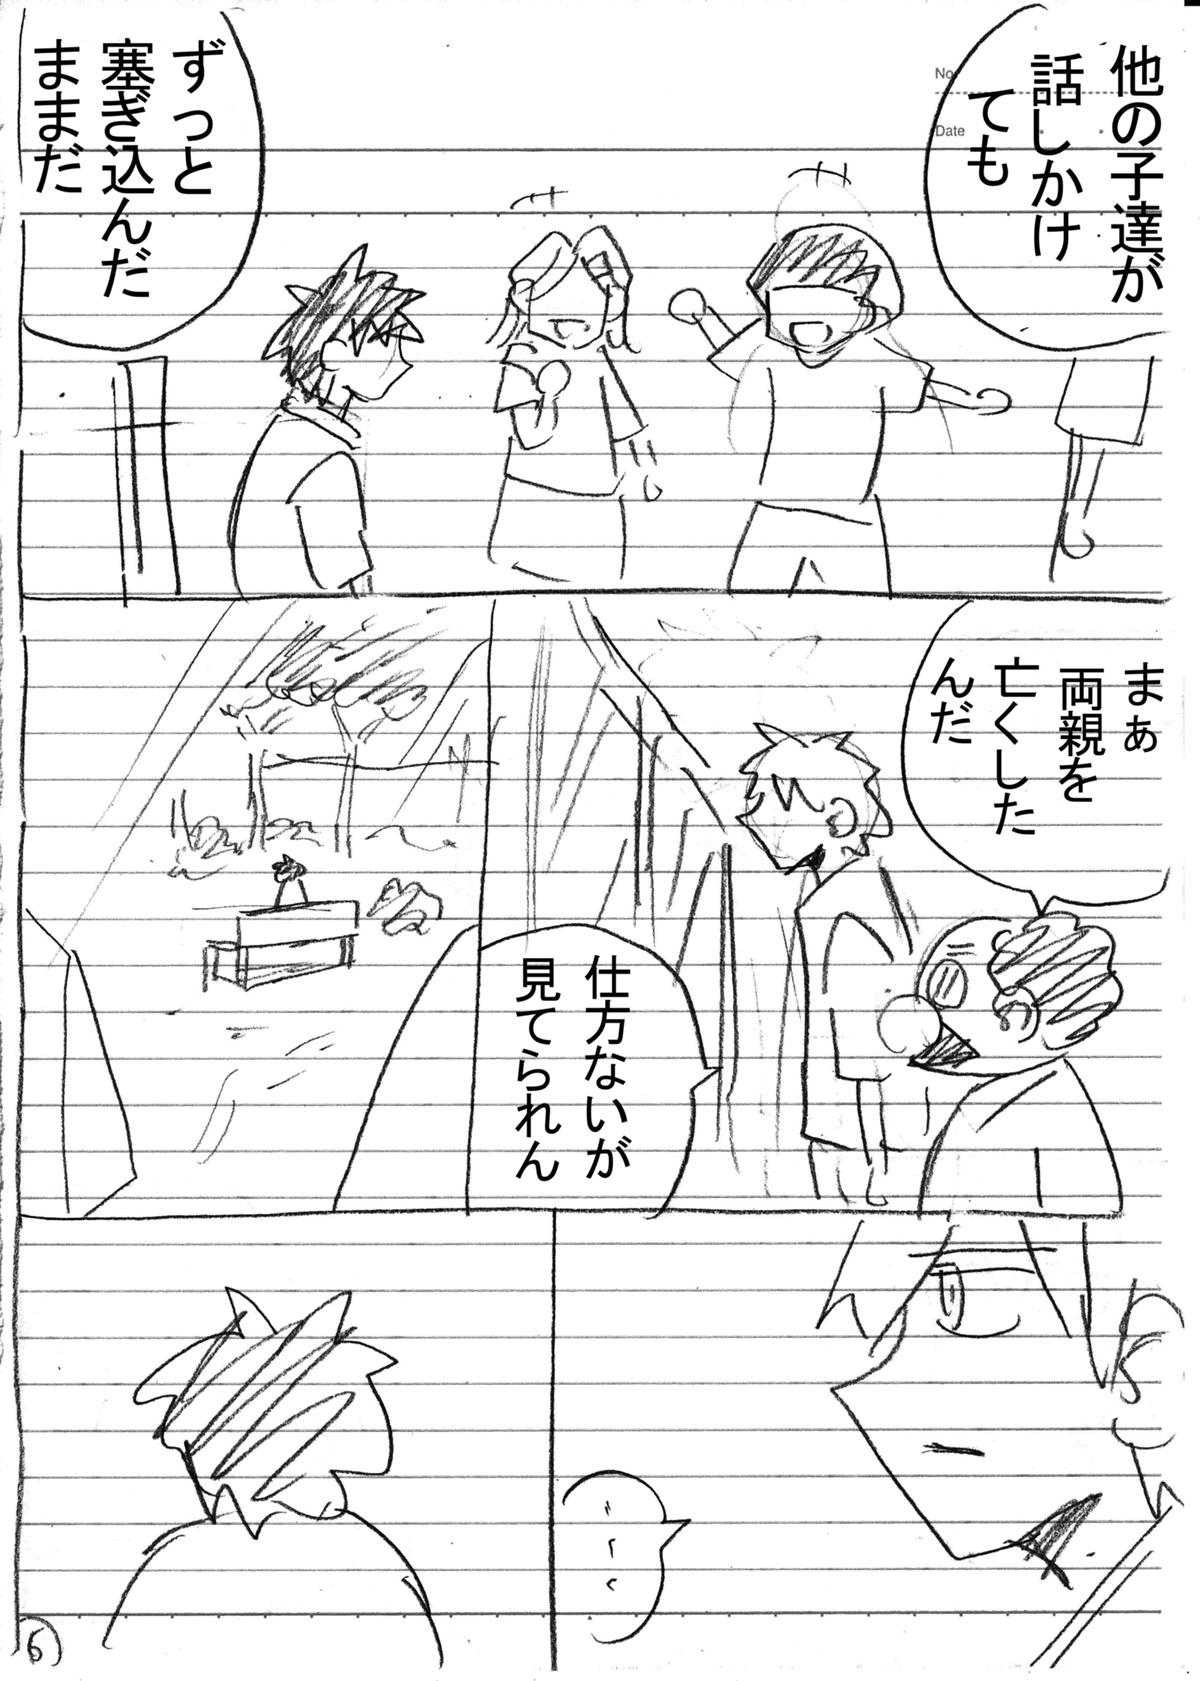 他の子達が
話しかけ
ても
No.
Date
ずっと
塞ぎ込んだ
ままだ
まぁ
両親を
亡くした
んだ
仕方ないが
見てられん
・・・
6